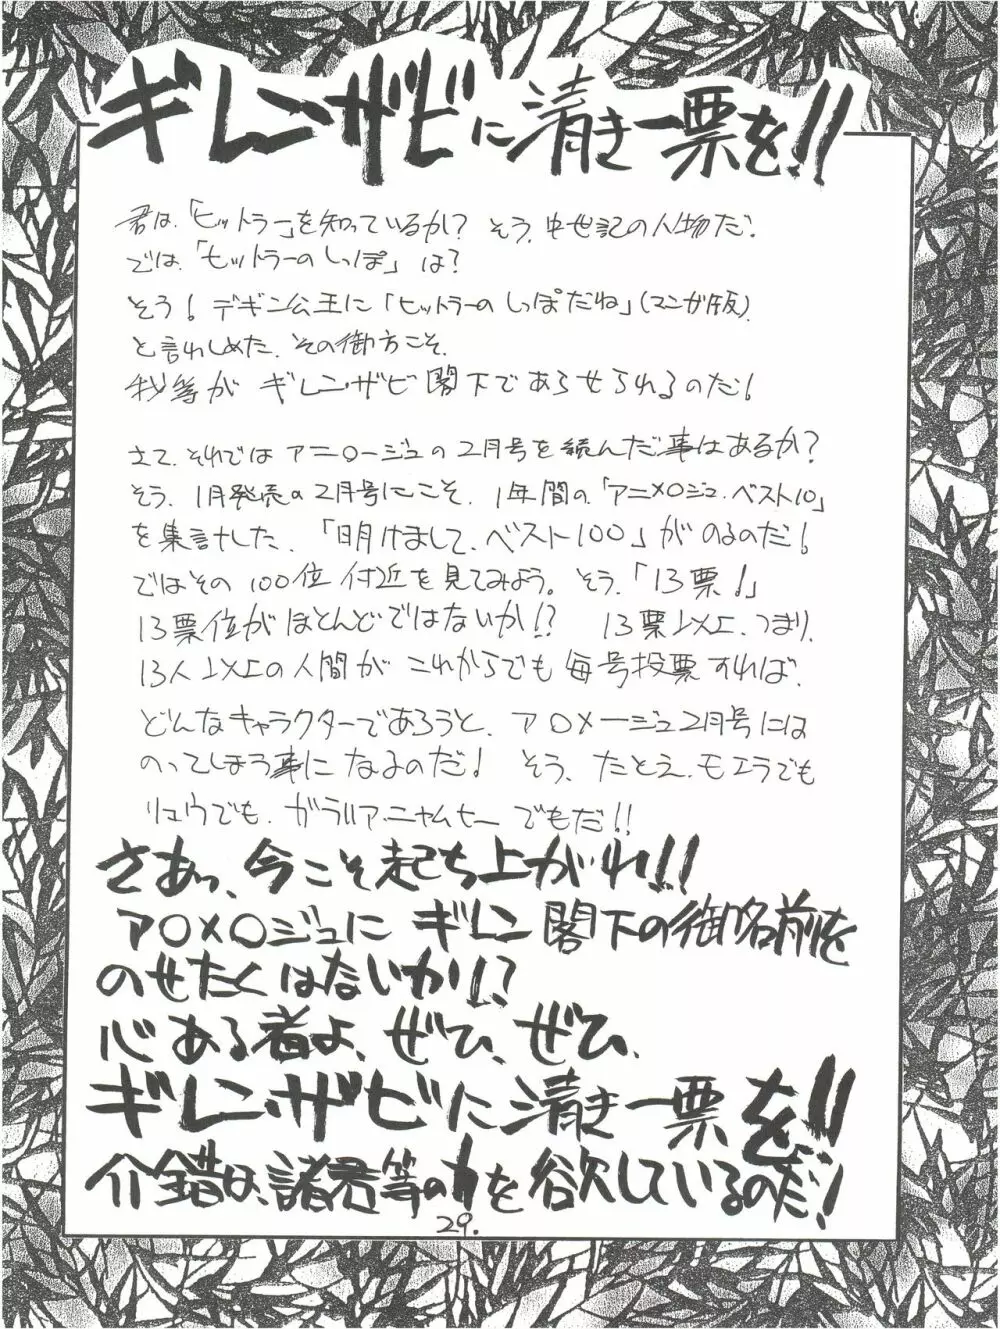 ギレン・ザビに清き一票を!!
君は、「ヒットラー」を知っているか? そう、中世記の人物だ。
では、「ヒットラーのしっぽ」は?
そう! デギン公王に「ヒットラーのしっぽだね」(マンガ版)。
と言わしめた、その御方こそ、
我等が ギレン・ザビ 閣下であらせられるのだ!
さて、それでは アニ○ージュの2月号を読んだ事はあるか?
そう、1月発売の2月号にこそ、1年間の「アニメ○ジュ・ベスト10」
を集計した、「明けまして、ベスト100」がのるのだ!
ではその100位付近を見てみよう。そう、「13票!」
13票位がほとんどではないか!? 13票以上、つまり、
13人以上の人間が これからでも毎号投票すれば、
どんなキャラクターであろうと、ア○メージュ2月号には
のってしまう事になるのだ! そう、たとえ、モエラでも
リュウでも、ガラリア・ニャムヒーでもだ!!
さあっ、今こそ起ち上がれ!!
ア○メ○ジュに ギレン閣下の御名前を
のせたくはないか!?
心ある者よ、ぜひ、ぜひ、
ギレン・ザビに清き一票を!!
介錯は、諸君等の力を欲しているのだ!
29.